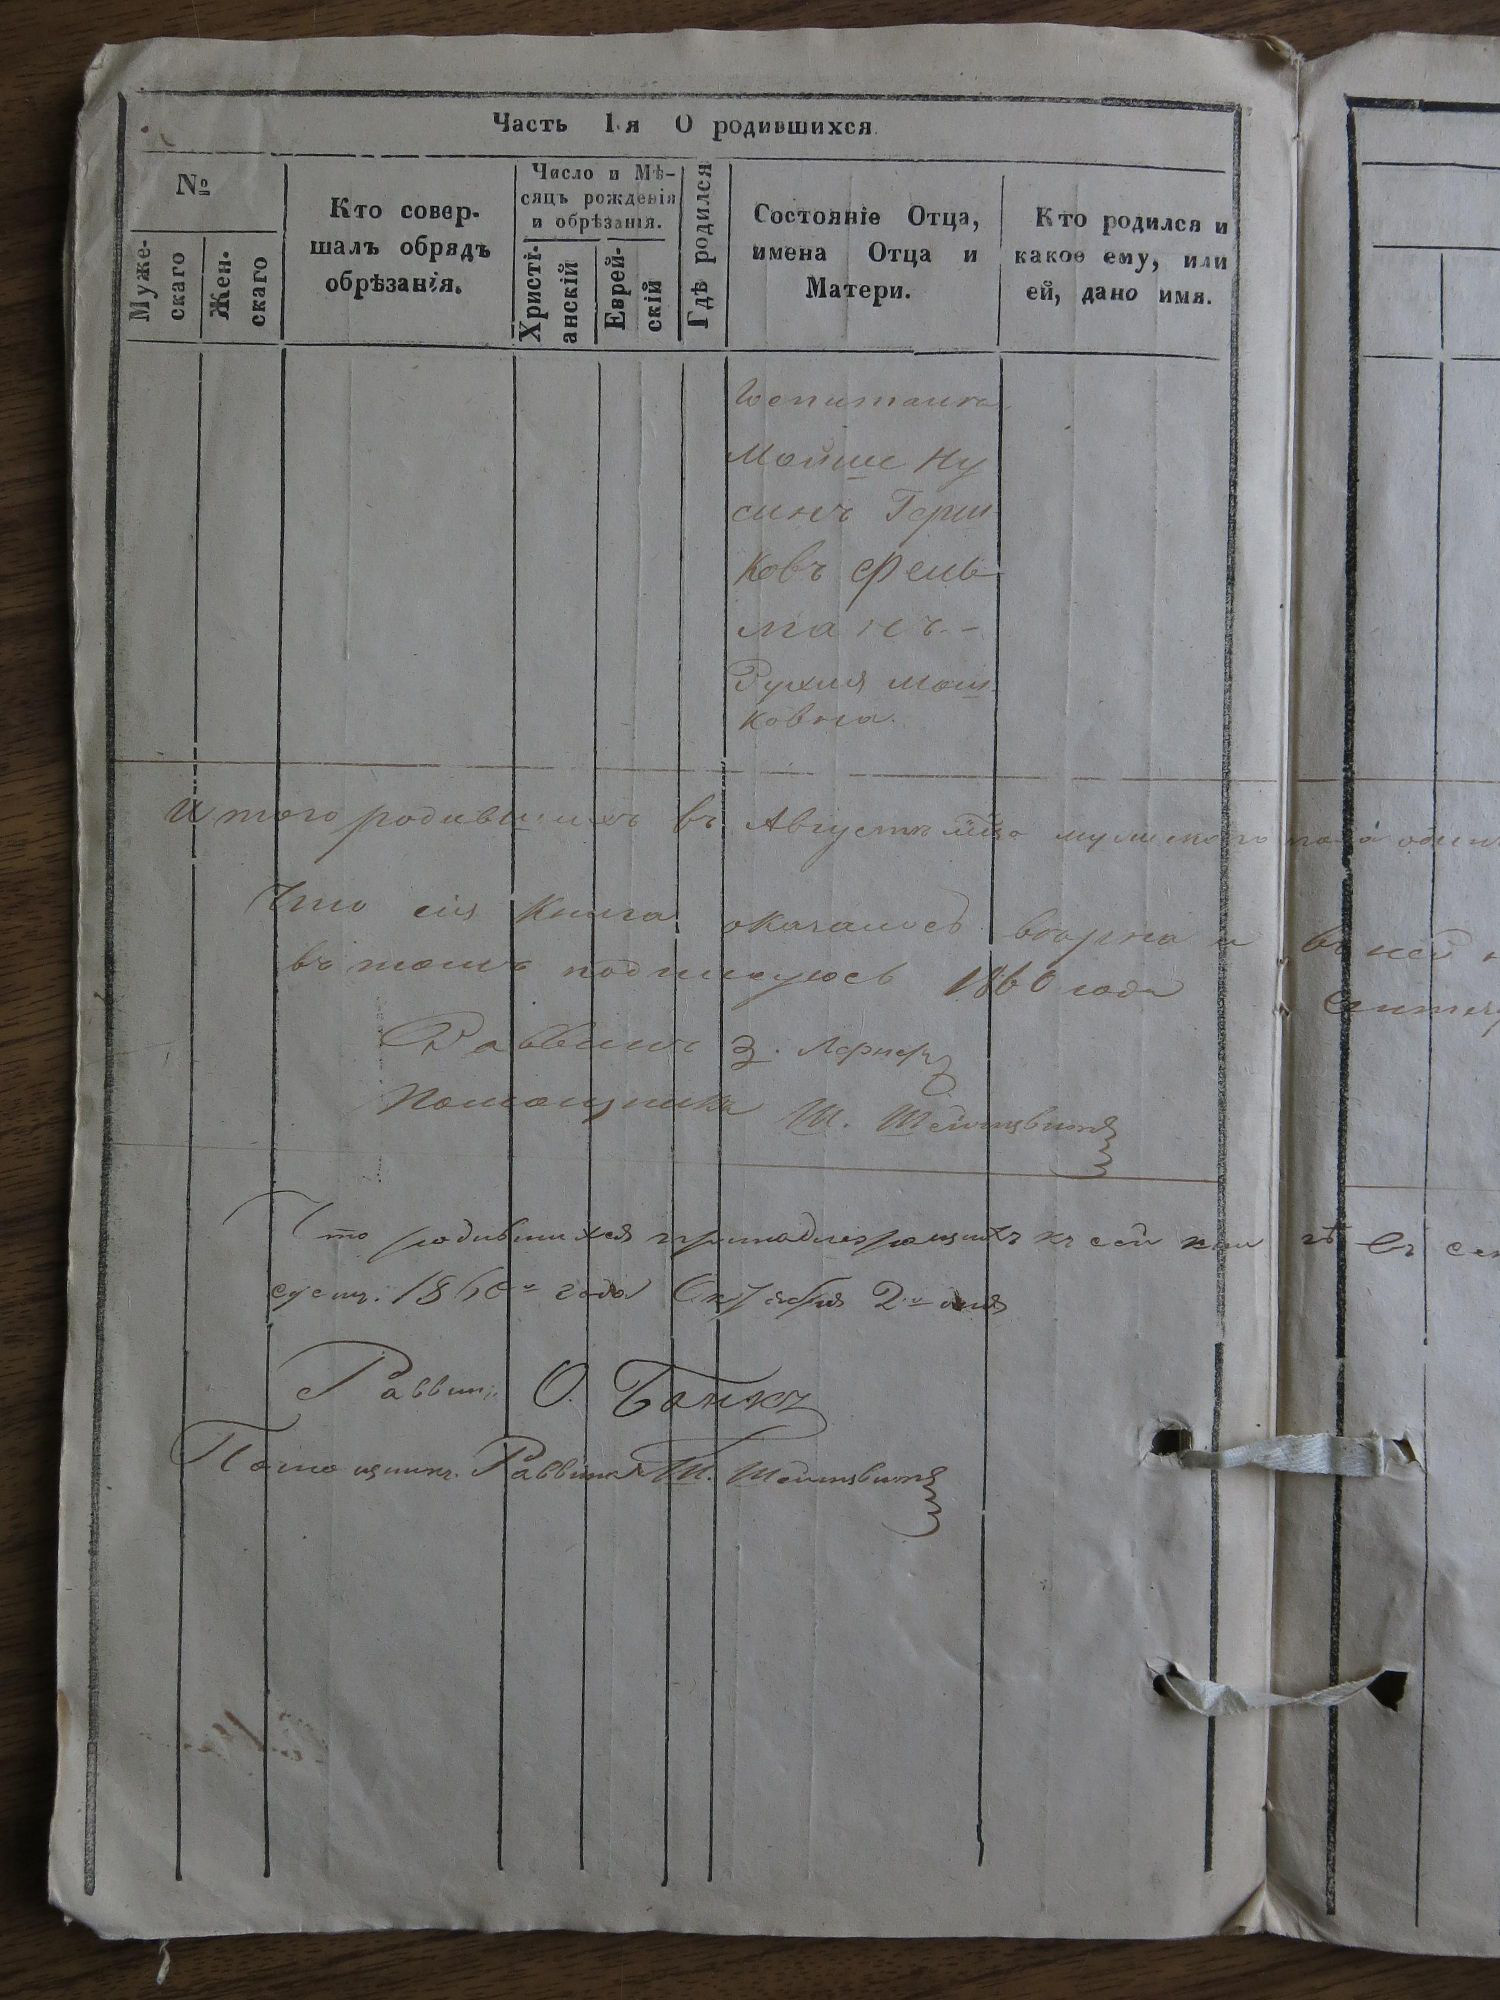 Часть 1-я О родившихся
№
Муже-
скаго
Жен-
скаго
Кто совер-
шалъ обрядъ
обрѣзанія.
Число и Мѣ-
сяцъ рожденія
и обрѣзанія.
Христі-
анскій
Еврей-
скій
Гдѣ родился
Состояніе Отца,
имена Отца и
Матери.
Кто родился и
какое ему, или
ей, дано имя.
Мойше Ну
синъ Герш
ковъ Фель
манъ. -
Рухля Мош
ковна.
Итого родившихъ въ Августѣ мужскаго пола одинъ
Что сія книга оказалось вѣрна и въ ней
въ томъ подписуюсь 1860 года
Раввинъ З. Лернеръ
Помощникъ Ш.
Что родившихся принадлежащихъ къ сей кни гѣ въ
1860го года Октября 2го дня
Раввинъ О. Банкъ
Помощникъ Раввина Ш.